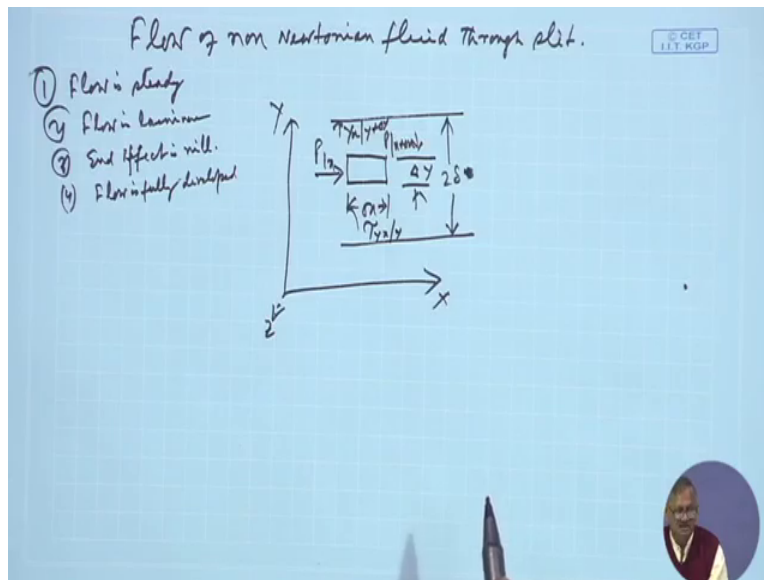 Flow of non Newtonian fluid through slit.
© CET
I.I.T. KGP
① Flow is steady
② Flow is laminar
③ End effect is nill.
(4) Flow is fully developed
Y
τyx|y+Δy
P|x
P|x+Δx
Δy
2δ
Δx
τyx|y
X
Z